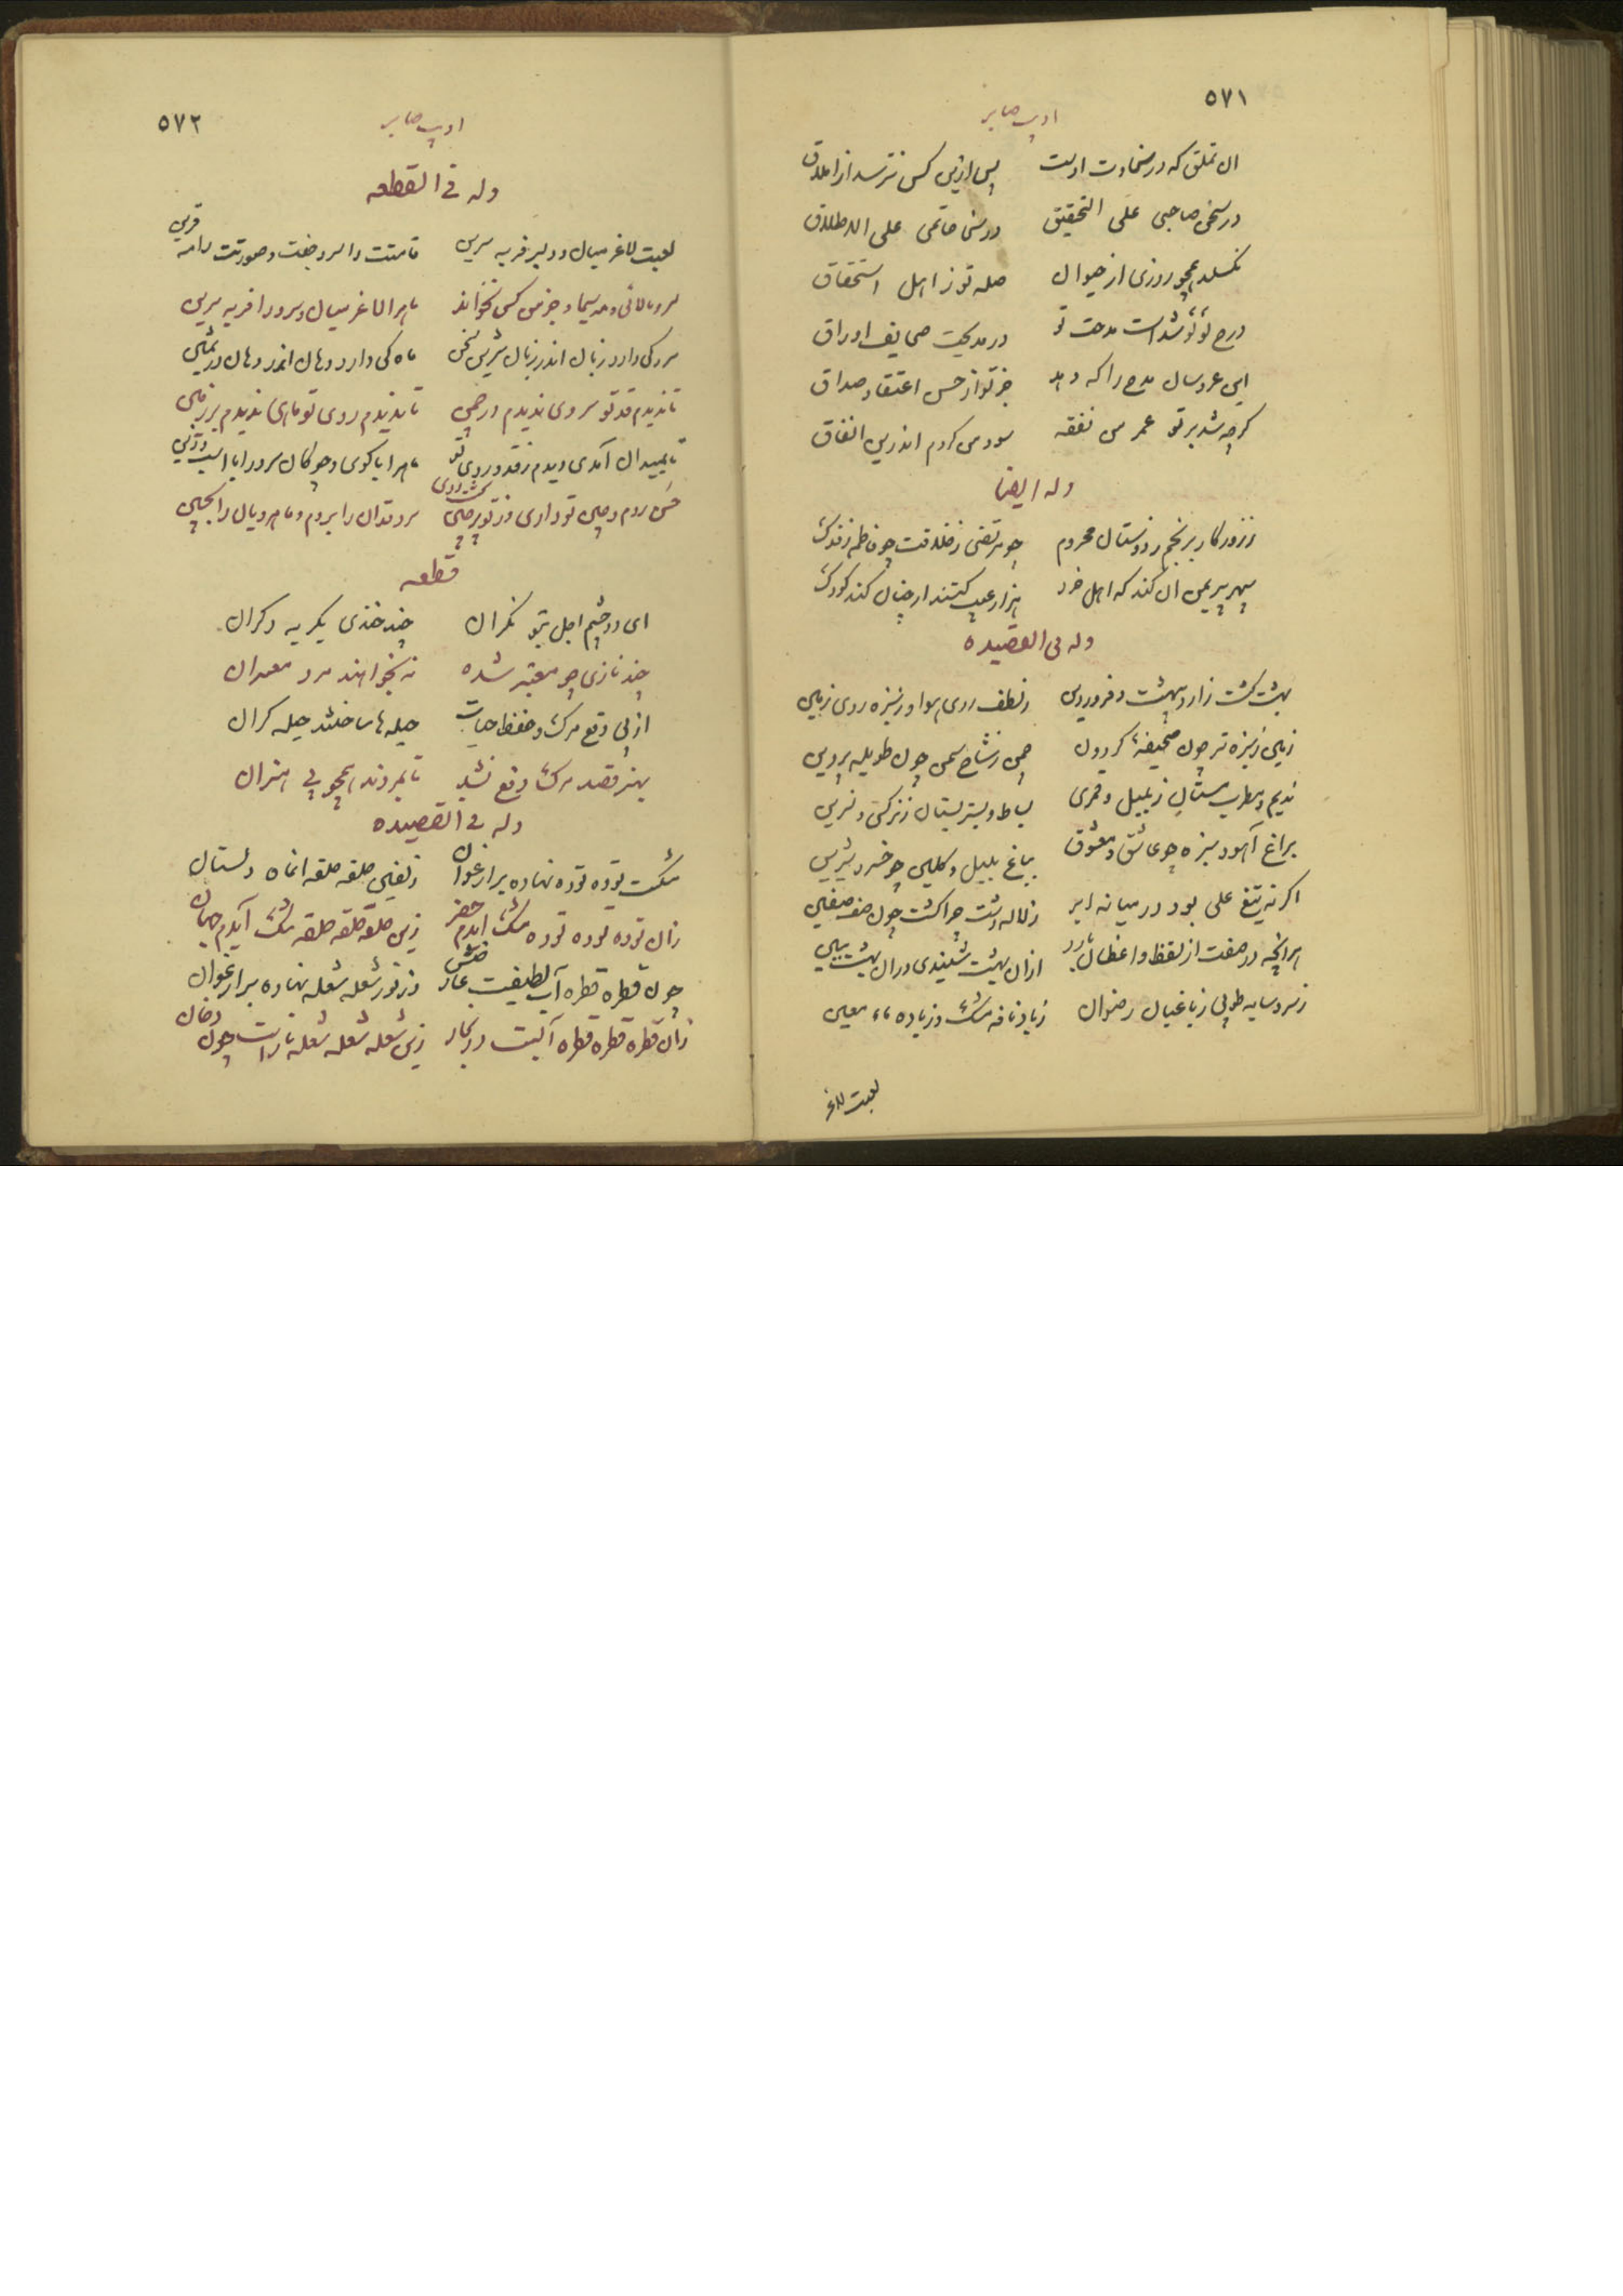 ۵۷۱
ادیب صابر
ان تملق که در سخاوت اوست پس ازین کس نترسد از املاق
در سخن صاحبی علی التحقیق در سخا حاتمی علی الاطلاق
نگسلد همچو روزی از حیوان صله تو ز اهل استحقاق
درج لؤلؤ شداست مدحت تو در مدیحت صحایف اوراق
این عروسان مدح را که دهد جز تو از حسن اعتقاد صداق
گرچه شد بر تو عمر من نفقه سود من کردم اندرین انفاق
وله ایضا
ز روزگار برنجم ز دوستان محروم چو مرتضی ز خلافت چو فاطمه ز فدک
سپهر پیر بمن ان کند که اهل خرد هزار عیب کنند ار چنان کند کودک
وله فی القصیده
بهشت گشت ز اردیبهشت و فروردین ز لطف روی هوا و ز سبزه روی زمین
زمین ز سبزه تر چون صحیفهٔ گردون چمن ز شاخ سمن چون طویله پروین
ندیم و مطرب مستان ز بلبل و قمری بساط و بستر بستان ز نرگس و نسرین
براغ آهو و سبزه چو عاشق و معشوق بباغ بلبل و گلبن چو خسرو شیرین
اگر نه تیغ علی بود در میانه ابر ز لاله دشت چرا گشت چون صف صفین
هرانچه در صفت از لفظ واعظان ازان بهشت شنیدی دران بهشت ببین
ز سرو سایه طوبی ز باغبان رضوان ز باد نافه مشک و ز باده ماء معین
لعبت لاغر
۵۷۲
ادیب صابر
وله فی القطعه
لعبت لاغر میان و دلبر فربه سرین قامتت با سرو جفت و صورتت با مه قرین
سرو بالائی و مه سیما و جز من کس نخواند ماه را لاغر میان و سرو را فربه سرین
سرو کی دارد زبان اندر زبان شیرین سخن ماه کی دارد دهان اندر دهان در ثمین
تا ندیدم قد تو سروی ندیدم در چمن تا ندیدم روی تو ماهی ندیدم بر زمین
تا بمیدان آمدی دیدم ز قد و روی تو ماه را با گوی و چوگان سرو را با اسب و زین
حسن روم و چین تو داری وز تو پر چین شد روی سرو قدان را بروم و ماه رویان را بچین
قطعه
ای دو چشم اجل بتو نگران چند خندی بگریه دگران
چند نازی چو معتبر شده نه بخواهند مرد معتبران
از پی دفع مرگ و حفظ حیات حیله ها ساختند حیله گران
بهنر قصد مرگ دفع نشد تا بمردند همچو بی هنران
وله فی القصیده
مشکست توده توده نهاده بر ارغوان زلفین حلقه حلقه ان ماه دلستان
زان توده توده توده مشک ایدم حقیر زین حلقه حلقه حلقه تنگ آیدم جهان
چون قطره قطره آب لطیفست عارضش وز نور شعله شعله نهاده بر ارغوان
زان قطره قطره قطره آبست در بحار زین شعله شعله شعله نارست چون دخان